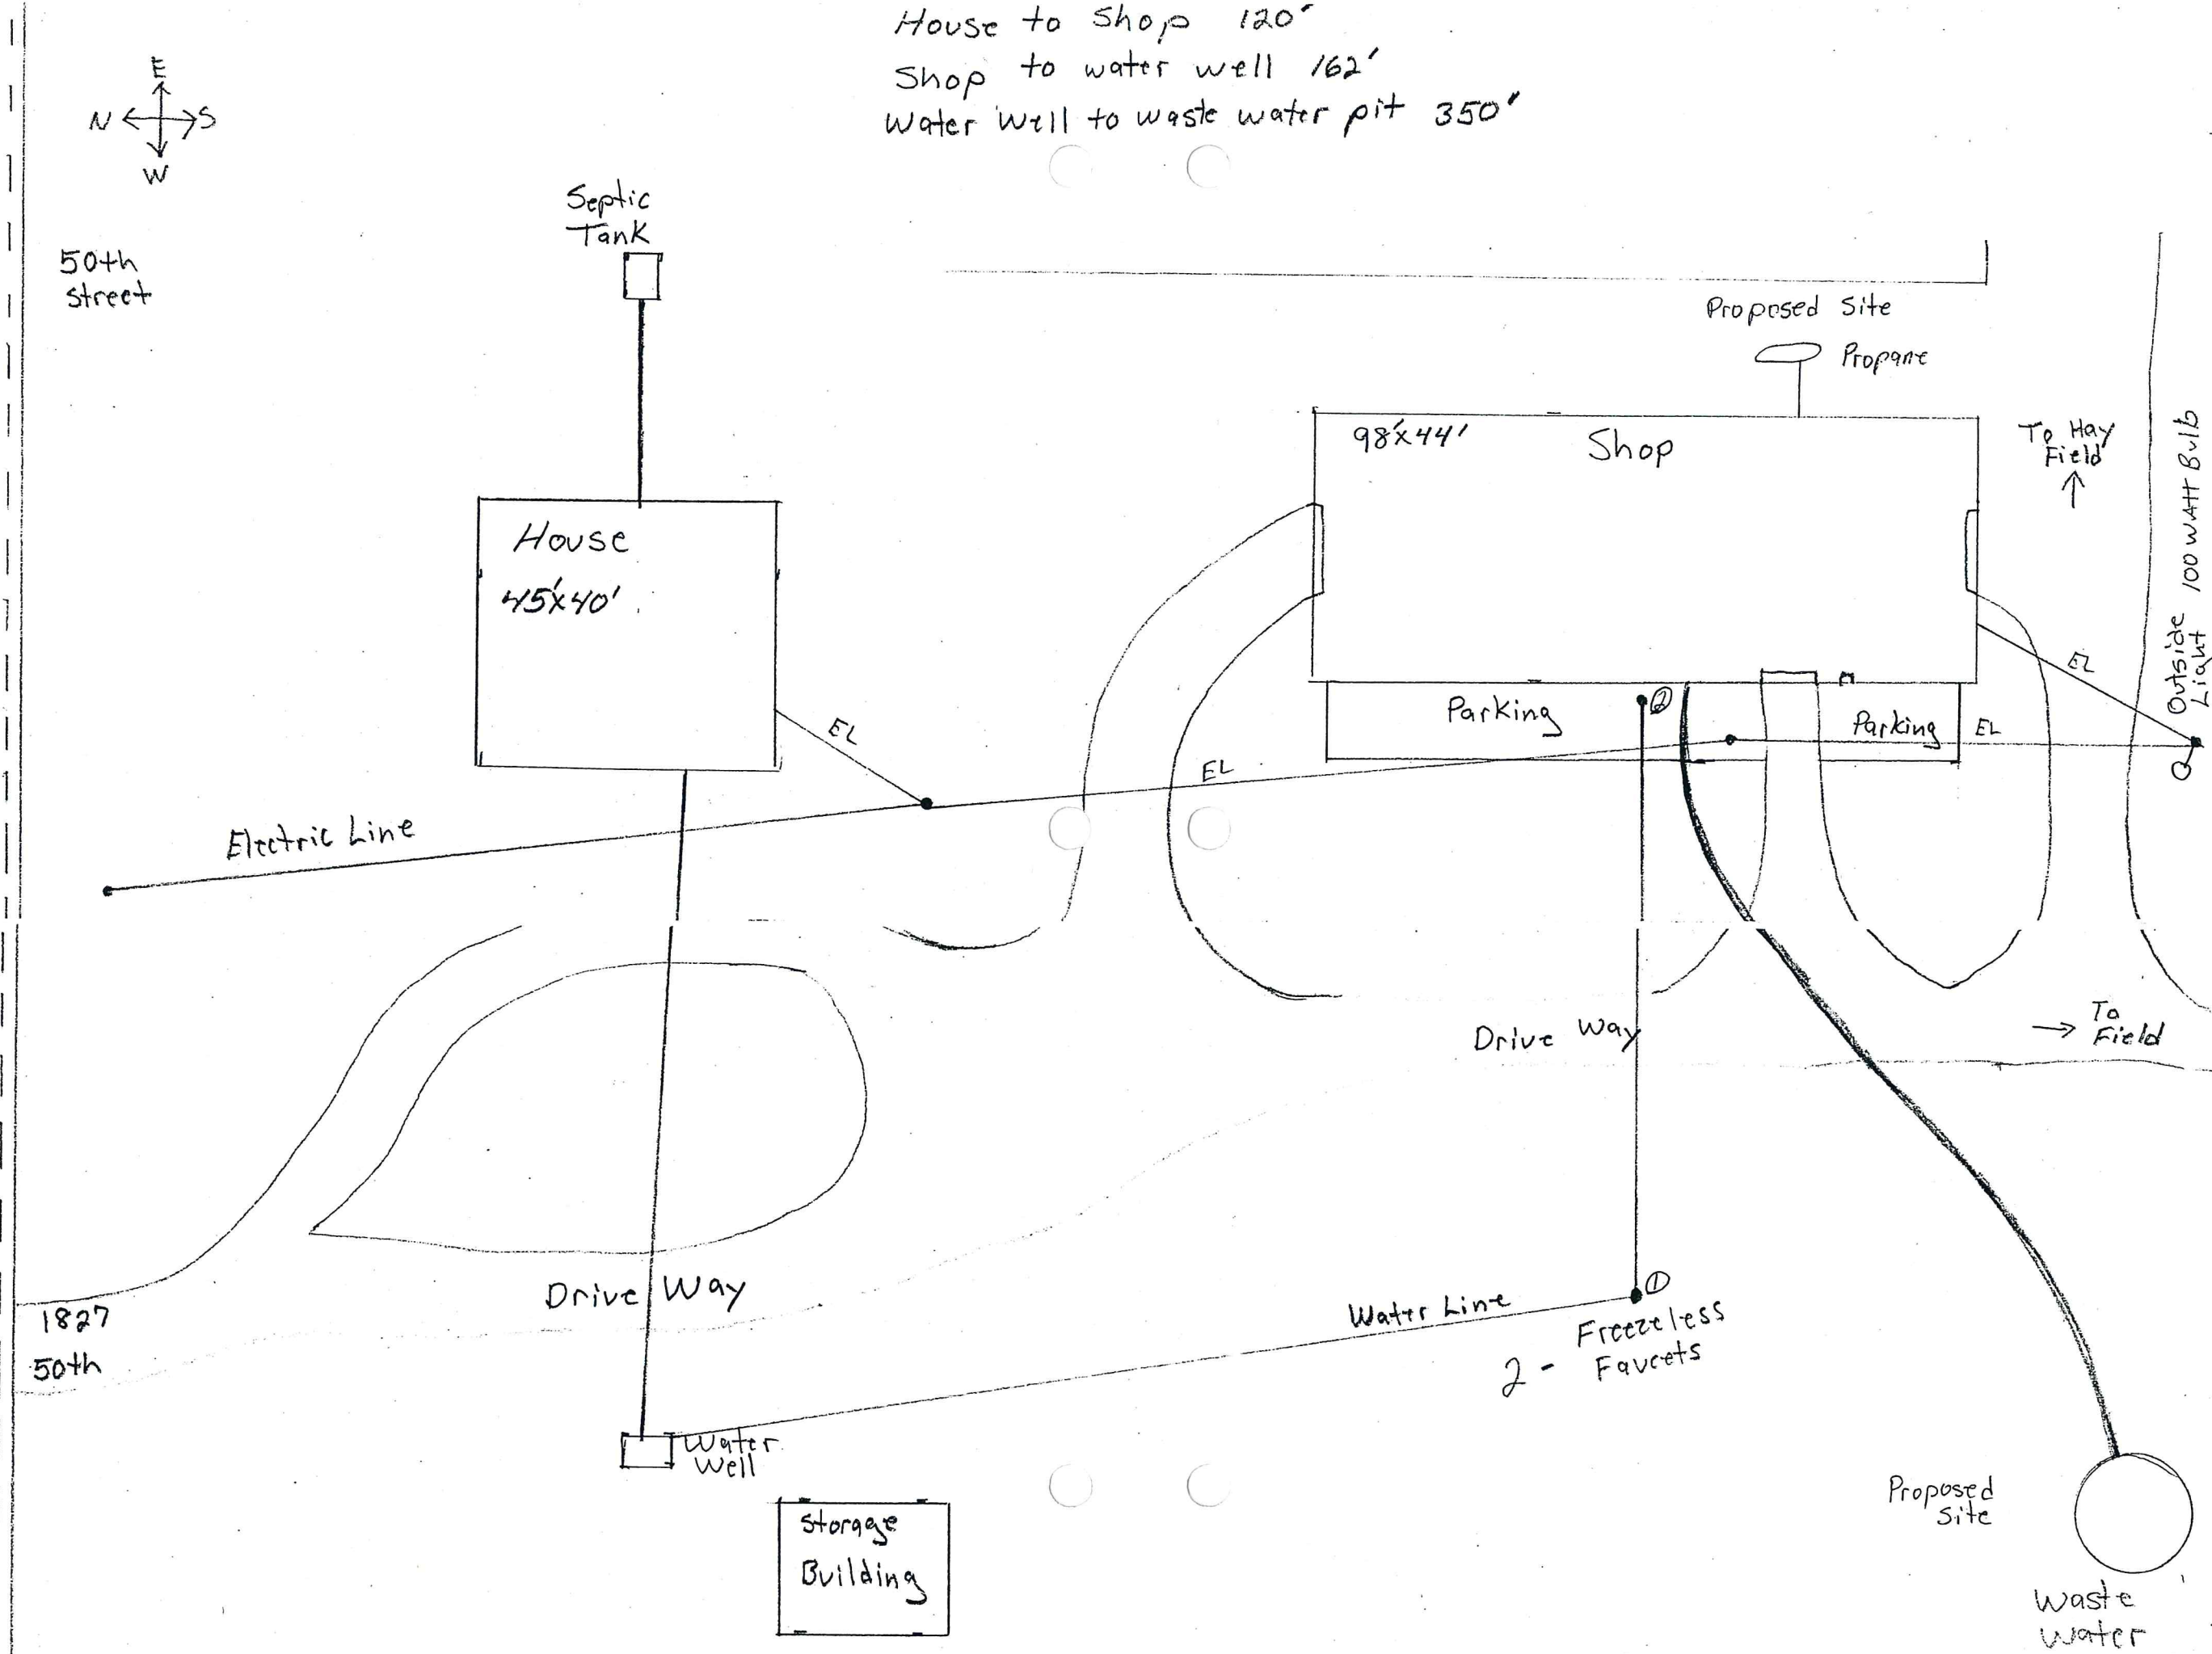 House to Shop 120'
Shop to water well 162'
Water Well to waste water pit 350'
E
N S
W
50th
street
Septic
Tank
Proposed Site
Propane
98'x44'
Shop
To Hay
Field
Outside 100 WATT Bulb
Light
House
45'x40'
EL
Parking
2
Parking
EL
EL
EL
Electric Line
Drive Way
To
Field
Drive Way
1827
50th
Water Line
1
Freezeless
2 - Faucets
Water
Well
Storage
Building
Proposed
Site
Waste
Water